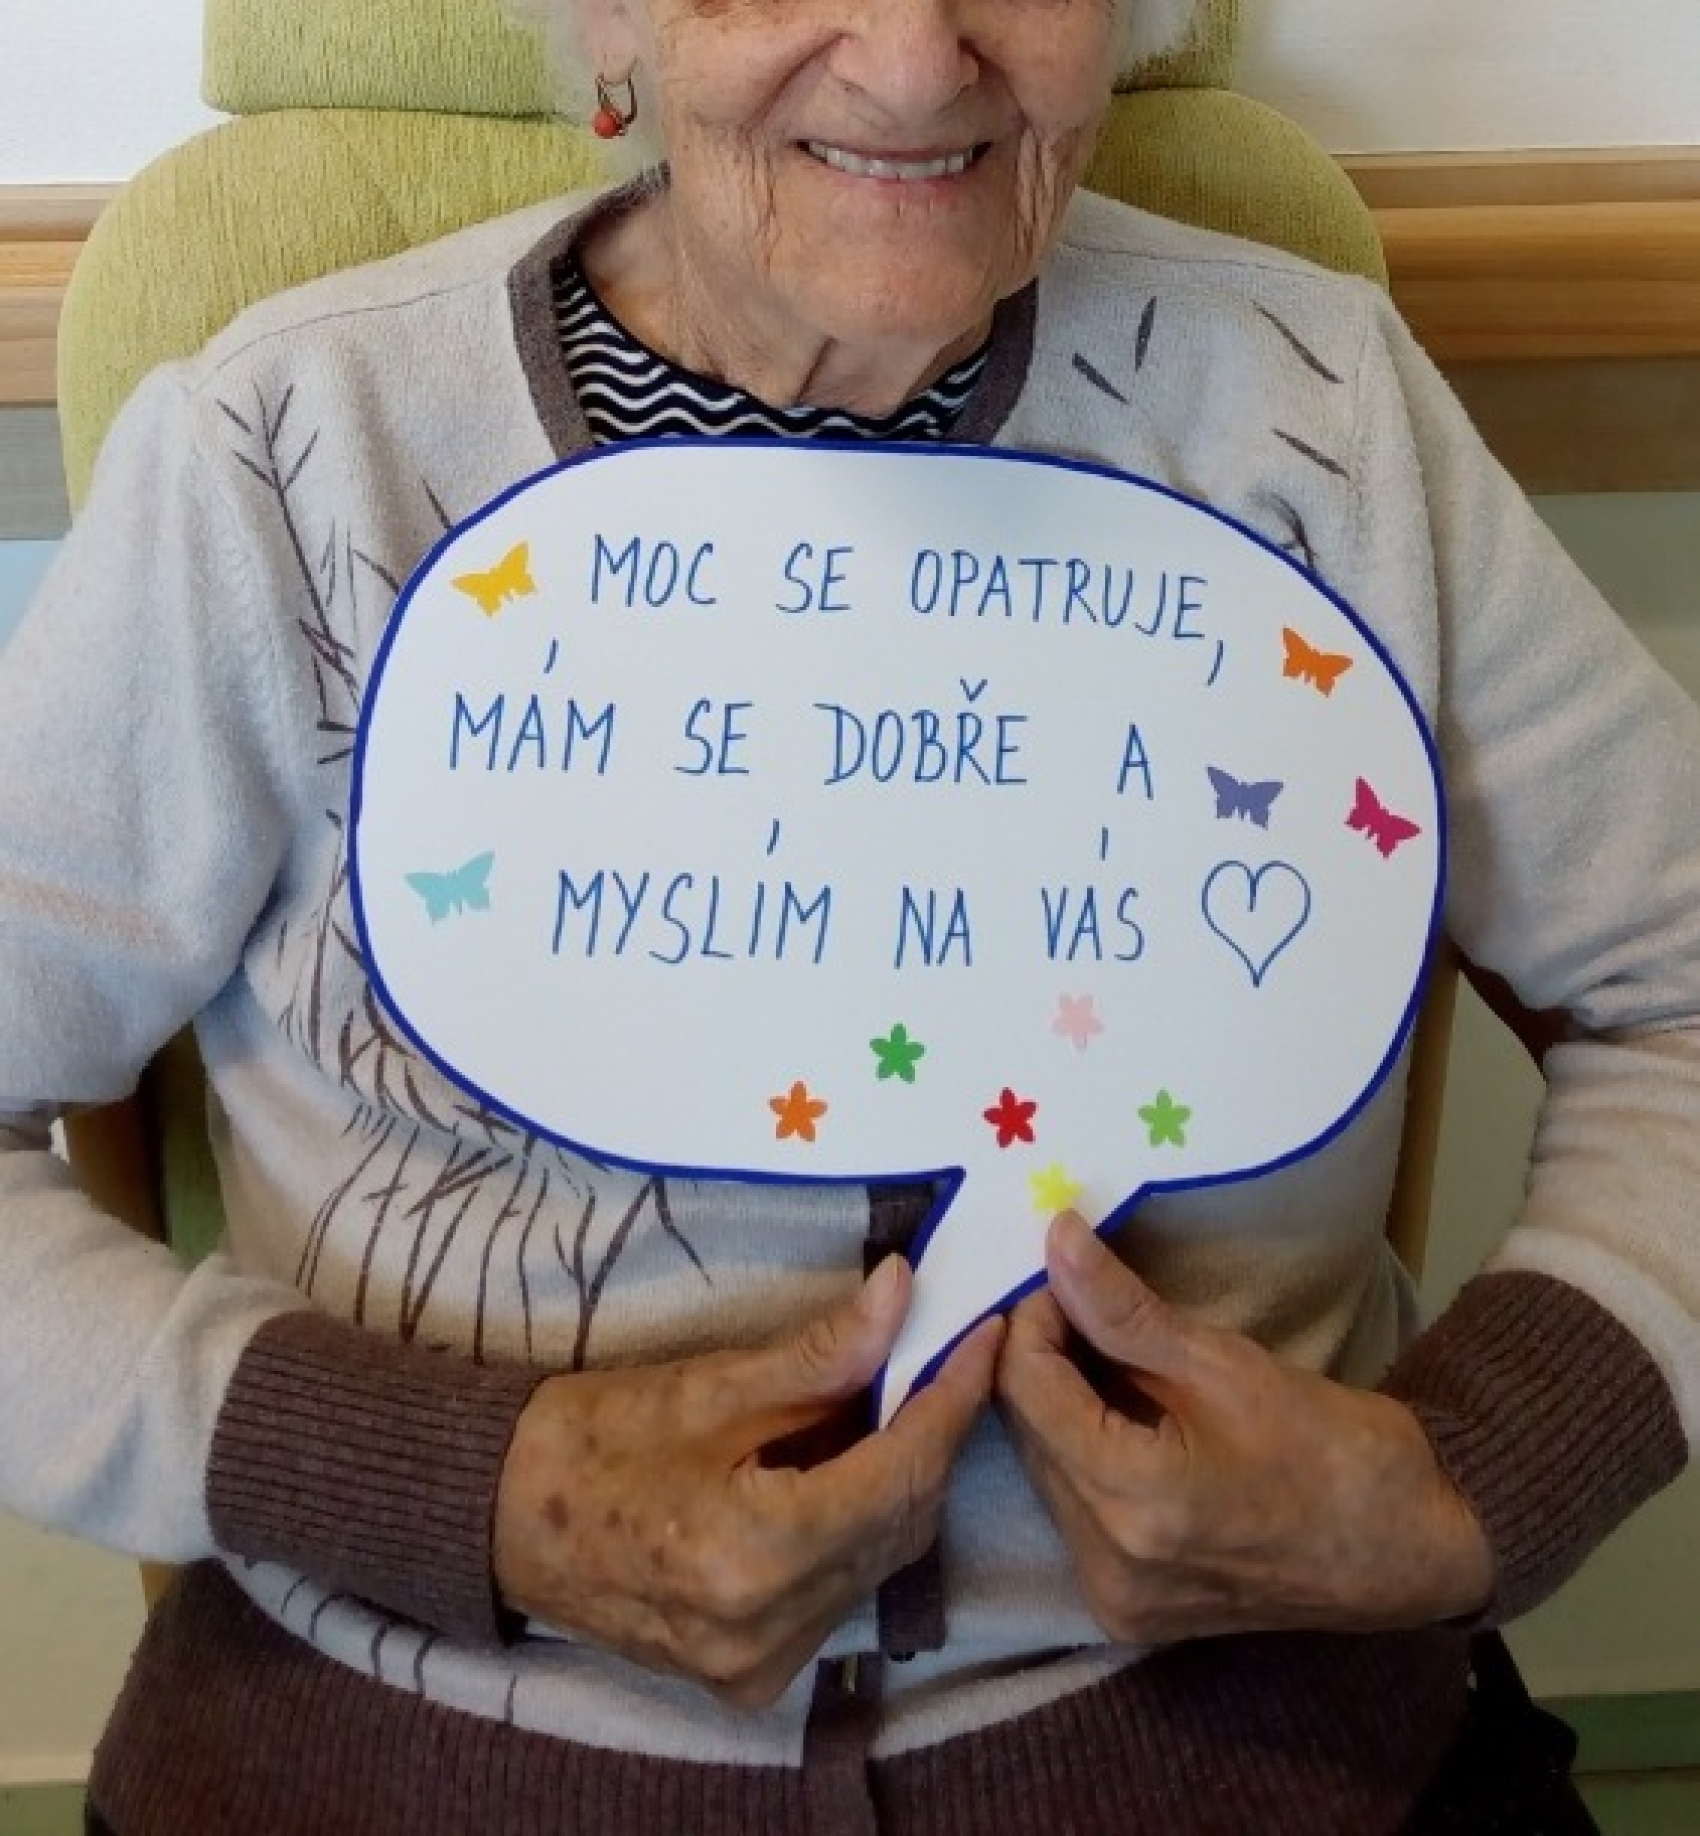 MOC SE OPATRUJE,
MÁM SE DOBŘE A
MYSLÍM NA VÁS